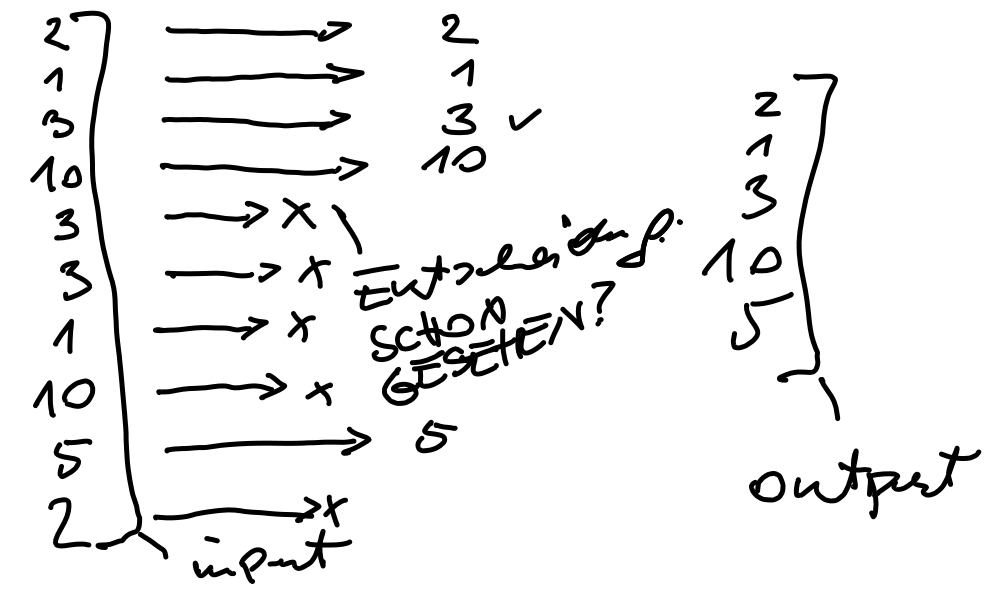 2 2
1 1
3 3 ✓
10 10
3 x
3 x
1 x
10 x
5 5
2 x
input
Entscheidung:
SCHON
GESEHEN?
2
1
3
10
5
output